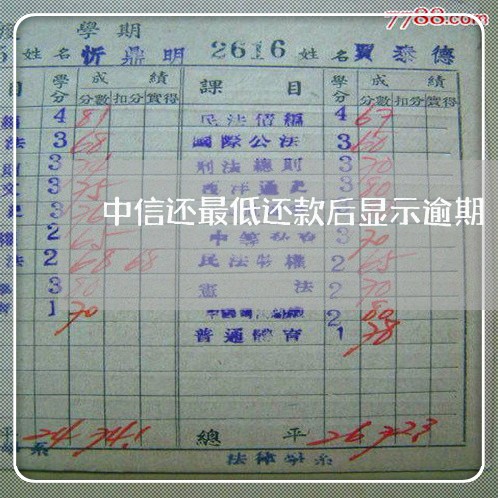 7788.com
學期
姓名 忻鼎明 2616 姓名 賈泰德
目 學分 成績 課目 學分 成績
分數 扣分 實得 分數 扣分 實得
4 81 民法債編 4 67
法 3 68 國際公法 3 60
3 刑法總則 3 70
3 75 西洋通史 3 80
中信还最低还款后显示逾期
2 65 3 70
法 2 68 68 民法物權 2 65
3 80 憲法 2 70
1 70 2 80
普通體育 1 78
24 74.1 總平 26 72.3
法律學系